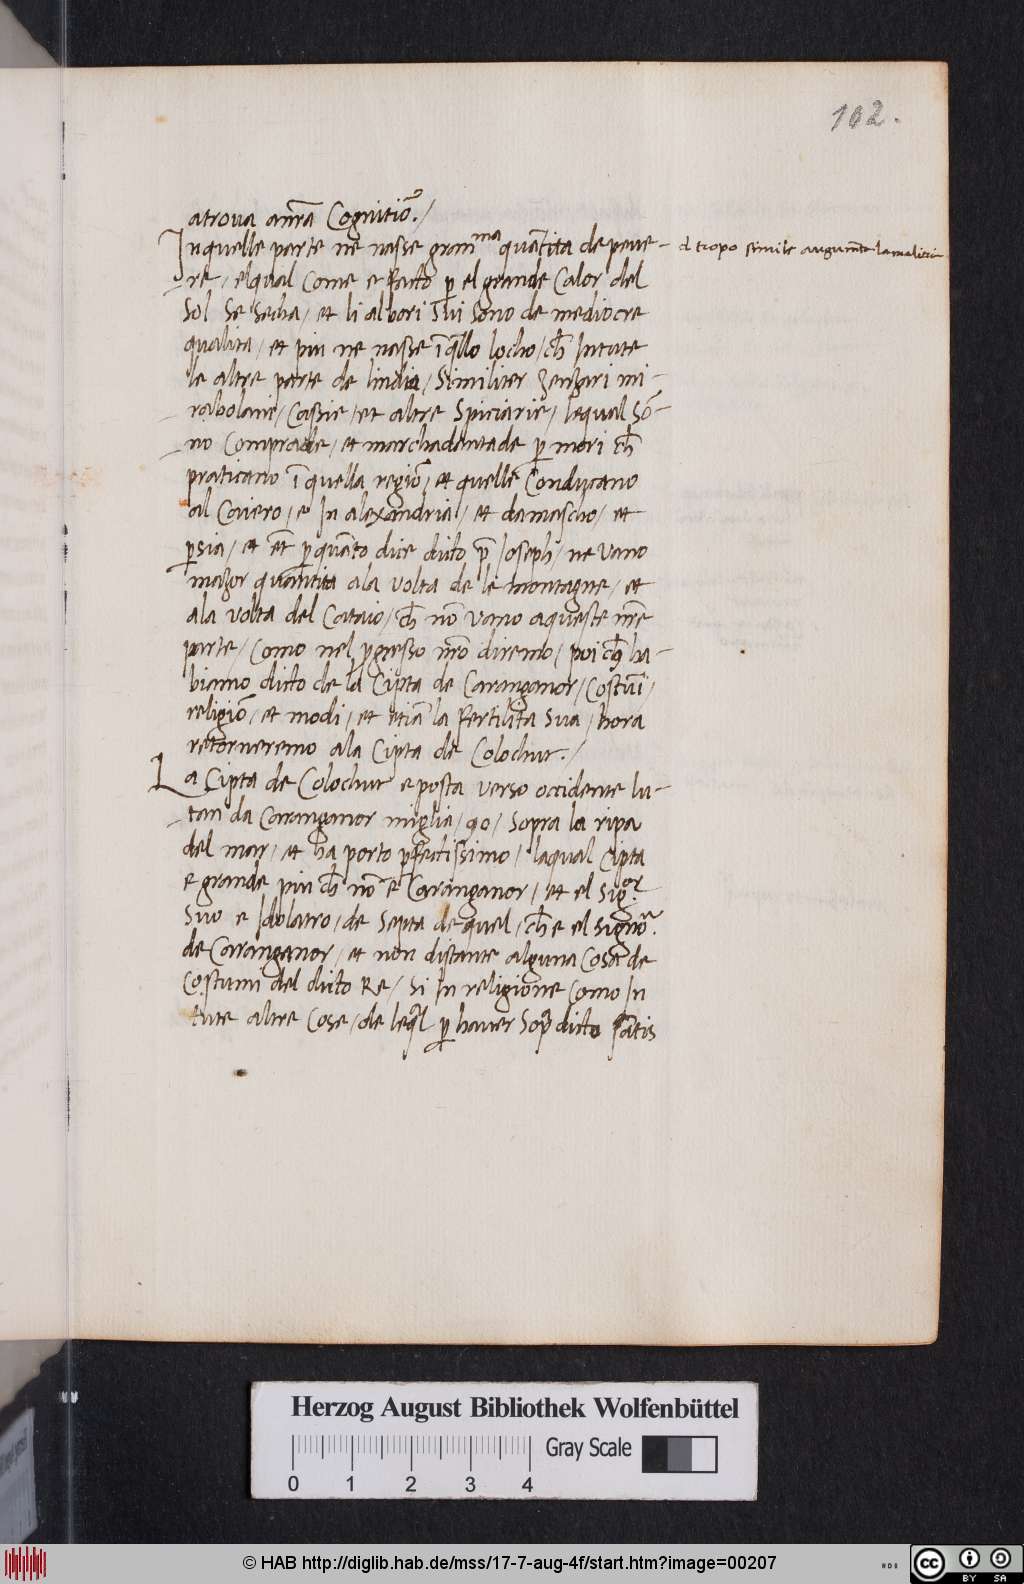 102.
atrova a nr̃a Cognitiõ./
Inquelle parte ne nasse gran^ma quãtita de peve-
re/ elqual Come e facto p el grande Calor del
Sol Se Secha/ et li albori Sui Sono de mediocre
qualita/ et piu ne nasse ĩ q̃llo locho/ ch̃ In tute
le altre parte de lindia/ Similiter Zenzari mi-
rabolani/ Cassie/ et altre Spiciarie/ lequal Sõ-
no Comprade/ et marchadentade p mori ch̃
praticano ĩ quella regiõ/ et quelle Conducano
al Caiero/ e In alexandria/ et damascho/ et
psia/ et et̃ p quãto dice dicto p̃ Ioseph/ ne vano
mazor quãtita ala volta de le montagne/ et
ala volta del Cataio/ ch̃ nõ vano aqueste nr̃e
parte/ Como nel pgresso nr̃o diremo/ poi ch̃ ha-
biamo dicto de la Cipta de Caranganor/ Costumi/
religiõ/ et modi/ et etiã la fertilita Sua/ hora
retorneremo ala Cipta de Colochut./
La Cipta de Colochut e posta verso occidente lu-
tan da Caranganor miglia/ 90/ Sopra la ripa
del mar/ et ha porto pfectissimo/ laqual Cipta
e grande piu ch̃ nõ e Caranganor/ et el Sig^or
Suo e Idolatro/ de Septa de quel/ ch̃ e el signor^e
de Caranganor/ et non distante alguna Cosa de
Costumi del dicto Re/ Si In religione Como In
tute altre Cose/ de leq̃l p haver Sop̃ dicto satis
el tropo simile augumẽto la malitia
Herzog August Bibliothek Wolfenbüttel
0 1 2 3 4
Gray Scale
© HAB http://diglib.hab.de/mss/17-7-aug-4f/start.htm?image=00207
cc BY SA